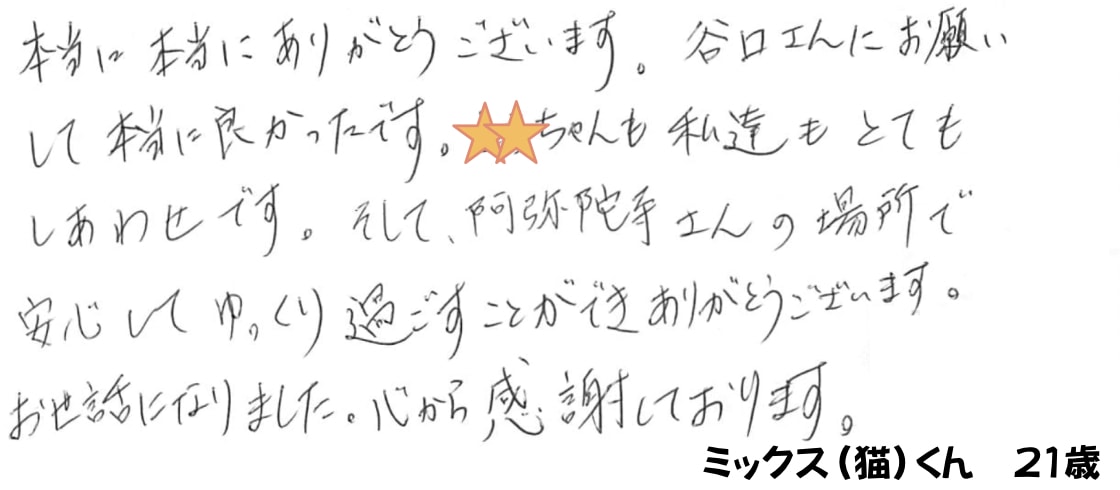 本当に本当にありがとうございます。谷口さんにお願い
して本当に良かったです。ちゃんも私達もとても
しあわせです。そして、阿弥陀寺さんの場所で
安心してゆっくり過ごすことができありがとうございます。
お世話になりました。心から感謝しております。
ミックス（猫）くん　21歳